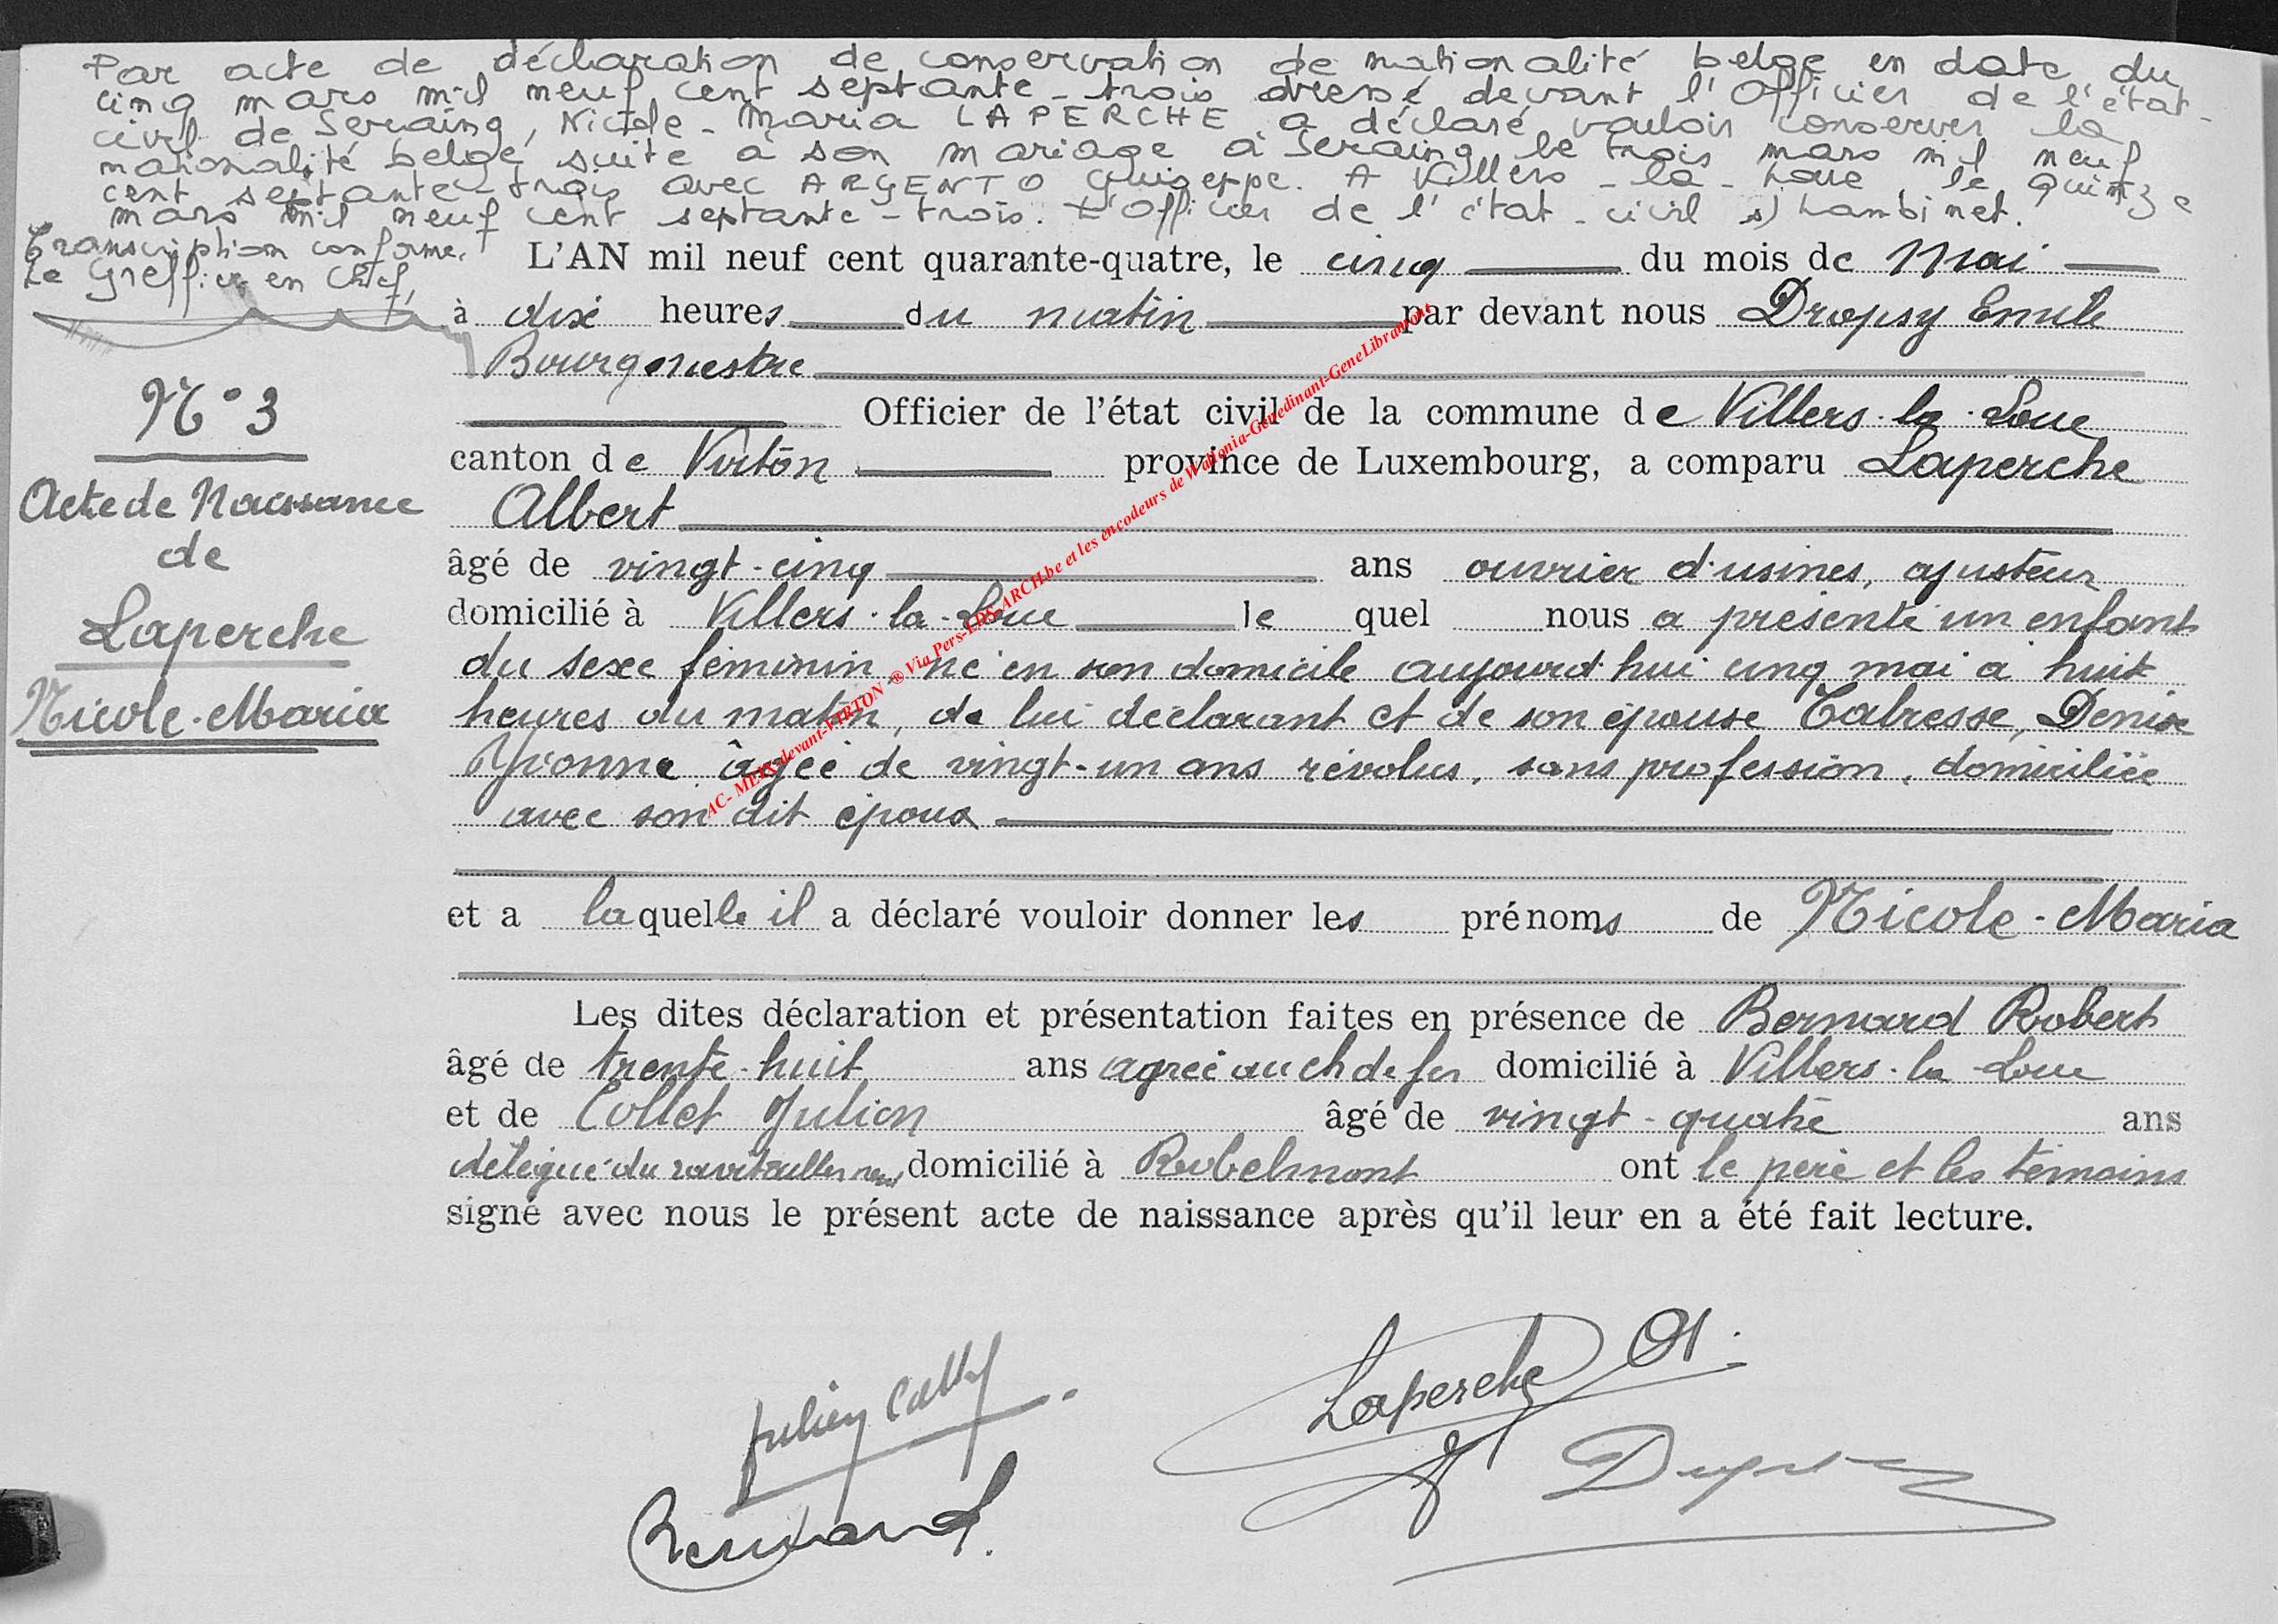 Par acte de déclaration de conservation de nationalité belge en date du
cinq mars mil neuf cent septante-trois dressé devant l'Officier de l'état-
civil de Seraing, Nicole-Maria LAPERCHE a déclaré vouloir conserver la
nationalité belge suite à son mariage à Seraing le trois mars mil neuf
cent septante-trois avec ARGENTO Guiseppe. A Villers-la-Loue, le quinze
mars mil neuf cent septante-trois. L'Officier de l'état-civil s) Lambinet.
Transcription conforme.
Le Greffier en Chef,
N° 3
Acte de Naissance
de
Laperche
Nicole-Maria
L'AN mil neuf cent quarante-quatre, le cinq du mois de Mai
à dix heures du matin par devant nous Dropsy Emile
Bourgmestre
Officier de l'état civil de la commune de Villers-la-Loue
canton de Virton province de Luxembourg, a comparu Laperche
Albert
âgé de vingt-cinq ans ouvrier d'usines, ajusteur
domicilié à Villers-la-Loue lequel nous a présenté un enfant
du sexe féminin, né en son domicile aujourd'hui cinq mai à huit
heures du matin, de lui déclarant et de son épouse Tabresse, Denise
Yvonne âgée de vingt-un ans révolus, sans profession, domiciliée
avec son dit époux
et a laquelle il a déclaré vouloir donner les prénoms de Nicole-Maria
Les dites déclaration et présentation faites en présence de Bernard Robert
âgé de trente-huit ans agréé au ch de fer domicilié à Villers-la-Loue
et de Collet Julien âgé de vingt-quatre ans
délégué du ravitaillement domicilié à Robelmont ont le père et les témoins
signé avec nous le présent acte de naissance après qu'il leur en a été fait lecture.
Julien Collet
Laperche A.
Bernard
Dropsy
AC- MEIX-devant-VIRTON ® Via Pers-LDS-ARCH.be et les encodeurs de Wallonia-Genedinant-GeneLibramont